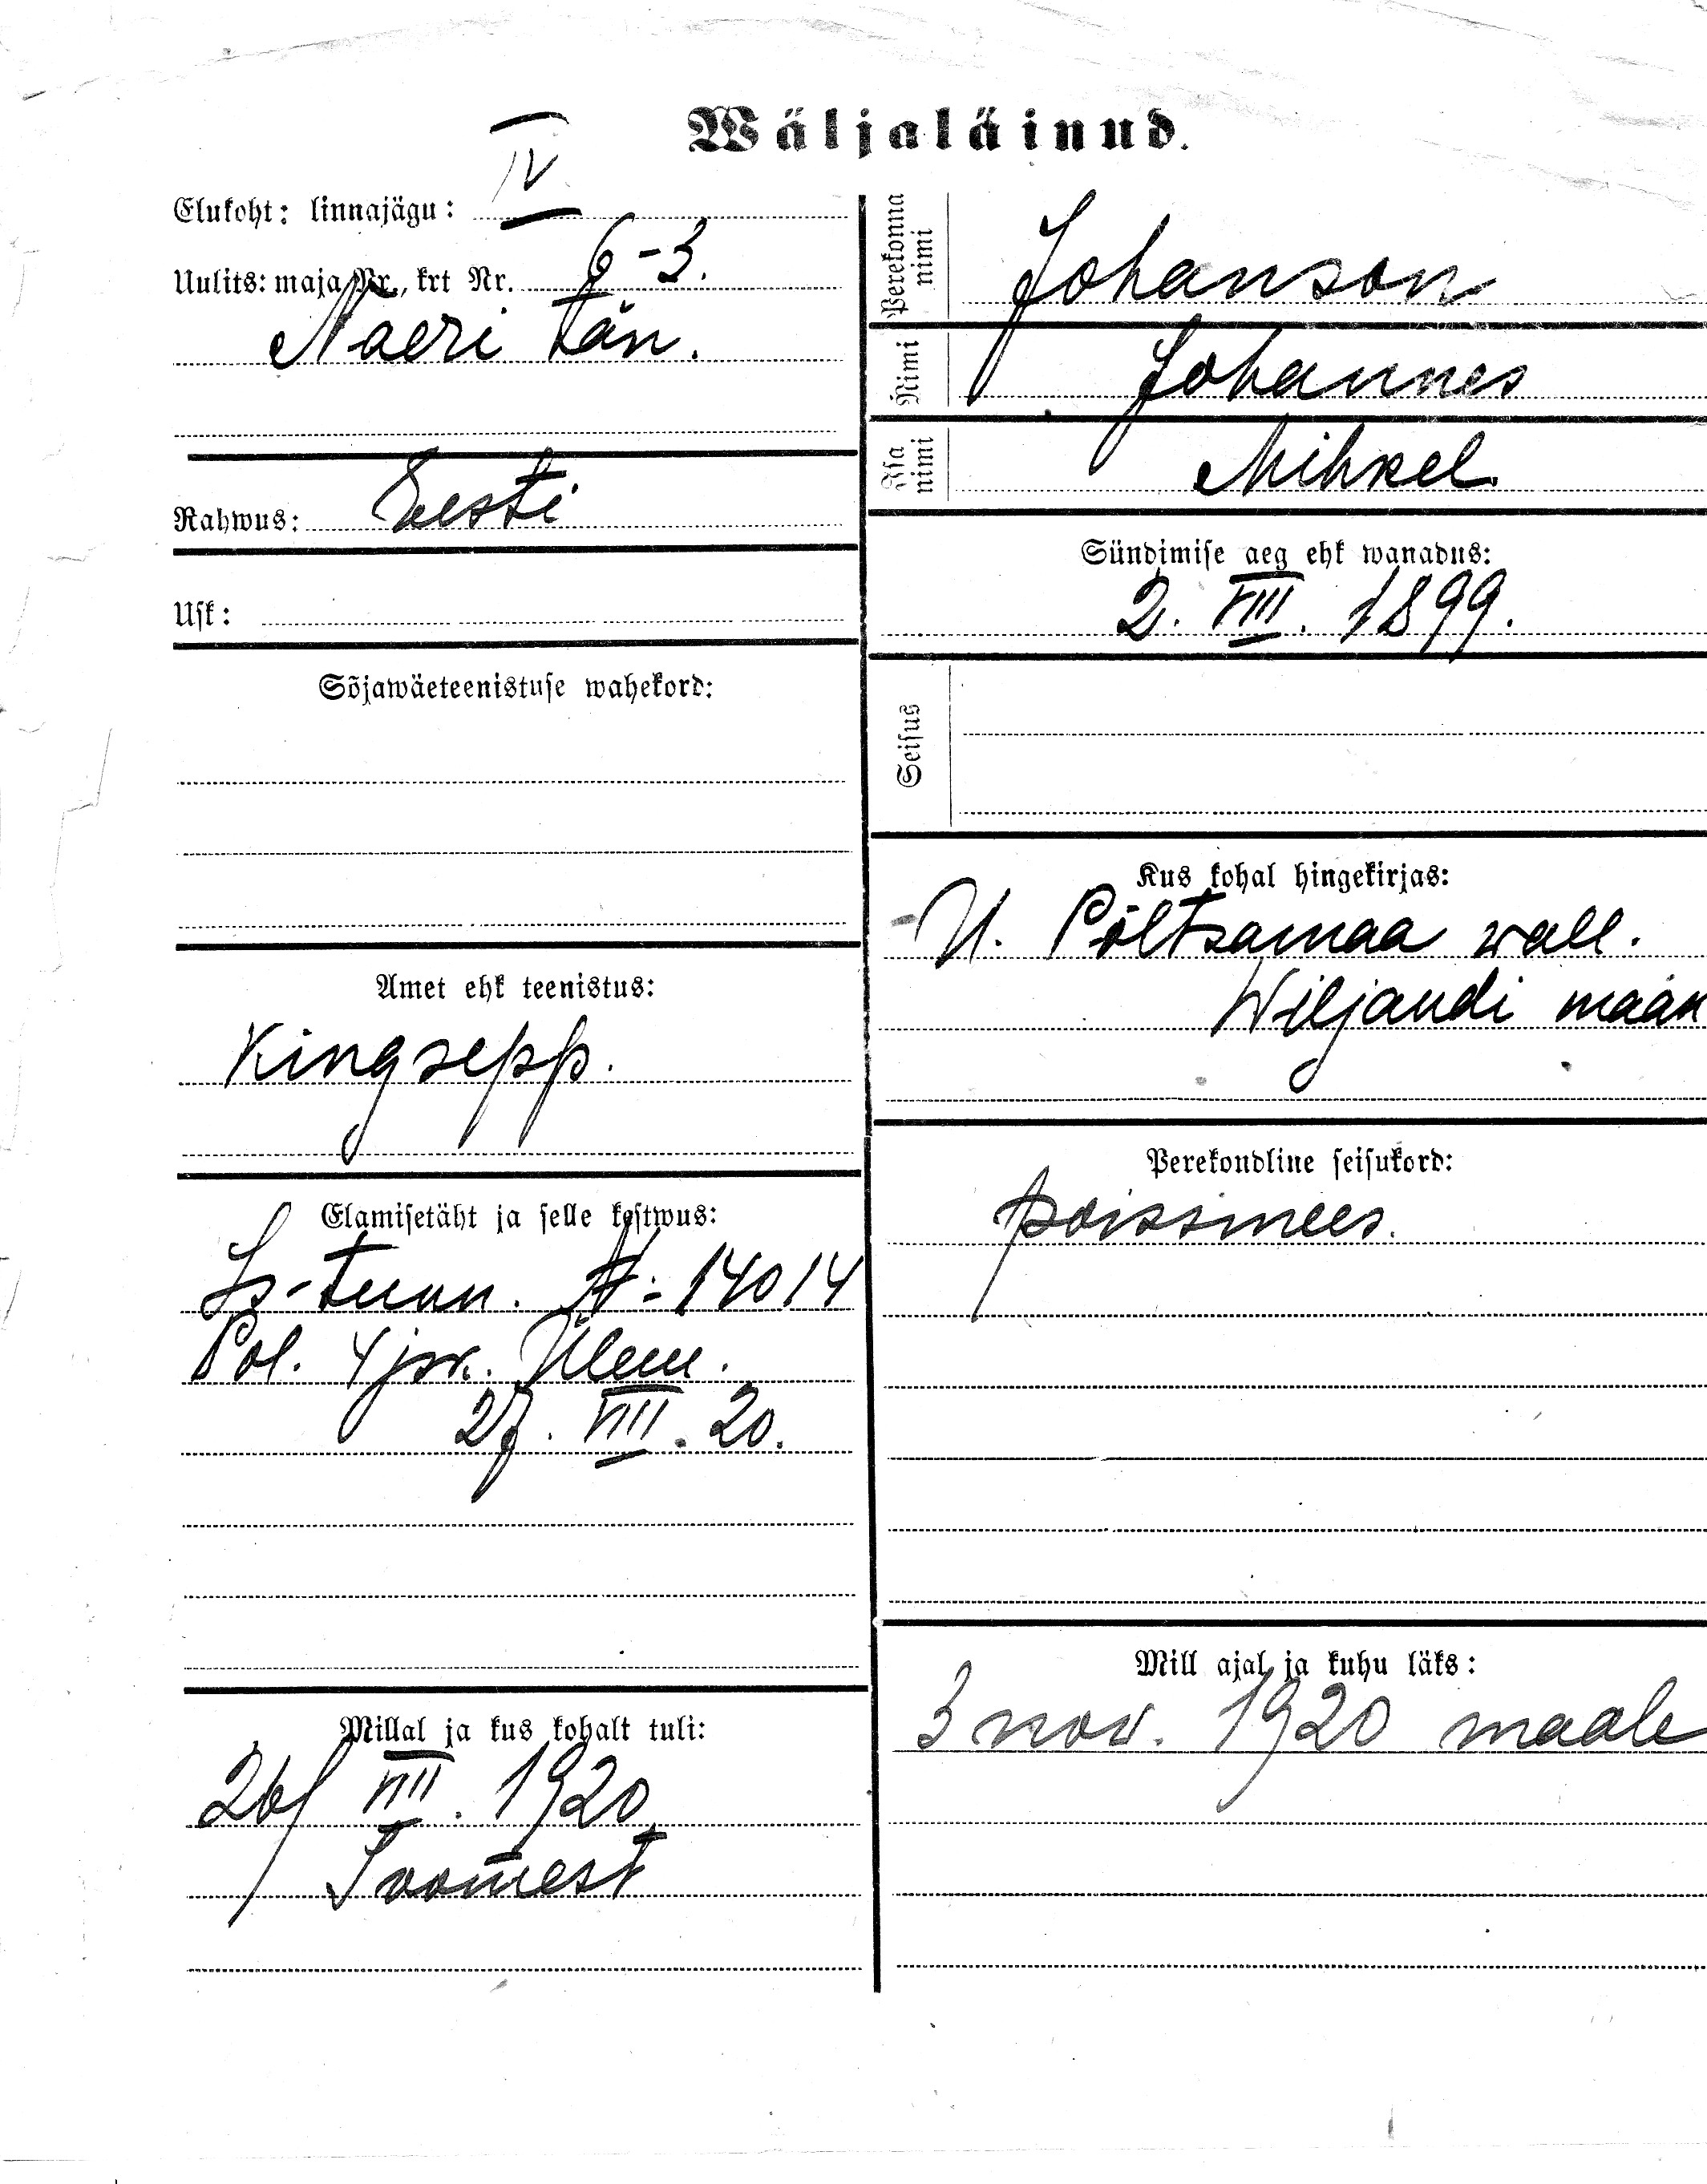 Wäljaläinud.
Elukoht: linnajägu: IV
Uulits: maja Nr., krt Nr. 6-3.
Naeri tän.
Rahwus: Eesti
Usk:
Sõjawäeteenistuse wahekord:
Amet ehk teenistus:
Kingsepp.
Elamisetäht ja selle kestwus:
Is-tunn. A: 14014
Pol. 4 jsk. Ülem.
27. VIII. 20.
Millal ja kus kohalt tuli:
26/ VIII. 1920
Soomest
Perekonna nimi Johanson
Nimi Johannes
Isa nimi Mihkel
Sündimise aeg ehk wanadus:
2. VIII. 1899.
Seisus
Kus kohal hingekirjas:
U. Põltsamaa wall.
Wiljandi maak
Perekondline seisukord:
poissmees.
Mill ajal ja kuhu läks:
3 nov. 1920 maale